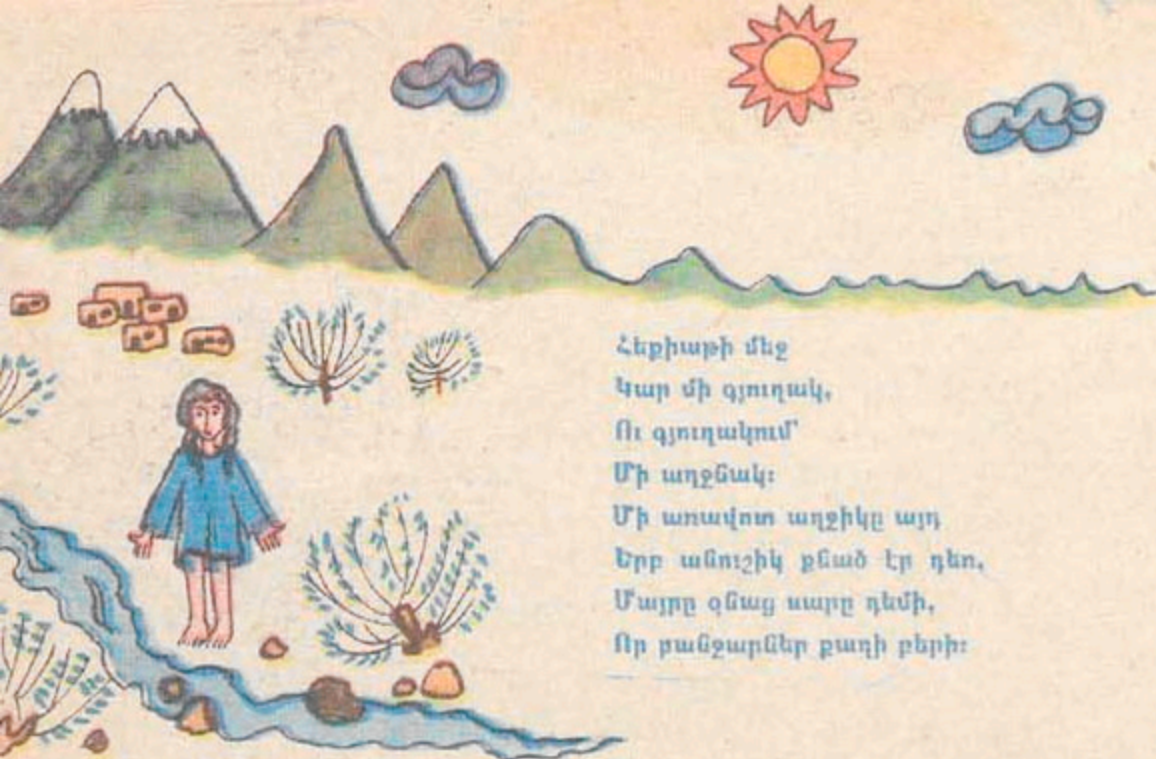 Հեքիաթի մեջ
Կար մի գյուղակ,
Ու գյուղակում՝
Մի աղջնակ։
Մի առավոտ աղջիկը այդ
Երբ անուշիկ քնած էր դեռ,
Մայրը գնաց սարը դեմի,
Որ բանջարներ քաղի բերի։